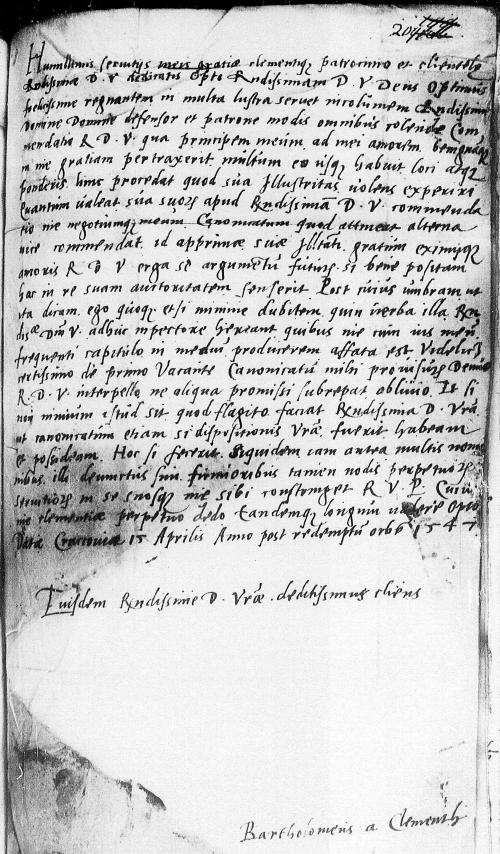 204
Humillimis servitijs meis gratiæ clementiæq; patrocinio et clientelæ
Rndissimæ D. V dedicatis Opto Rndissimam D. V Deus Optimus
fœlicissime regnantem in multa lustra servet incolumem Rndissime
Domine Domine defensor et patrone modis omnibus colende Com
mendatio R D. V. qua principem meum, ad mei amorem, benignamq;
in me gratiam pertraxerit multum eo usq; habuit loci atq;
ponderis. hinc procedat quod sua Illustritas, volens experiri
Quantum valeat sua suorq; apud Rndissimā D. V. commenda
tio me negotiumq; meum Canonicatum quod attinet alterna
vice commendat. id apprimæ suæ Illtati. gratum eximiumq;
amoris R D V erga se argumētū futurū. si bene positam
hac in re suam autoritatem senserit Post cuius umbram ut
ita dicam, ego quoq; etsi minime dubitem, quin verba illa Rn
dissæ Dnis V. adhuc in pectore hereant quibus me cum ius meū
frequenti capitulo in mediū producerem affata est, Videlicet
certissimo de primo Vacante Canonicatū mihi provisurū Demū
R. D. V. interpello, ne aliqua promissi subrepat oblivio. Et si
non nimium istud sit quod flagito, faciat Rndissima D. Vrā
ut canonicatum etiam si dispositionis Vræ fuerit habeam
et possideam. Hoc si fecerit. Siquidem cum antea multis nomi
nibus, illi devinctus sim, firmioribus tamen nodis perpetuorū
servitiorū in se suosq; me sibi constringet R. V. P. Cuius
me clementiæ perpetuo dedo tandemq; longum valere Opto
Datæ Cracoviæ 15 Aprilis Anno post redemptū orbē 1547
Eiusdem Rndissime D. Vræ. deditissimus cliens
Bartholomeus a